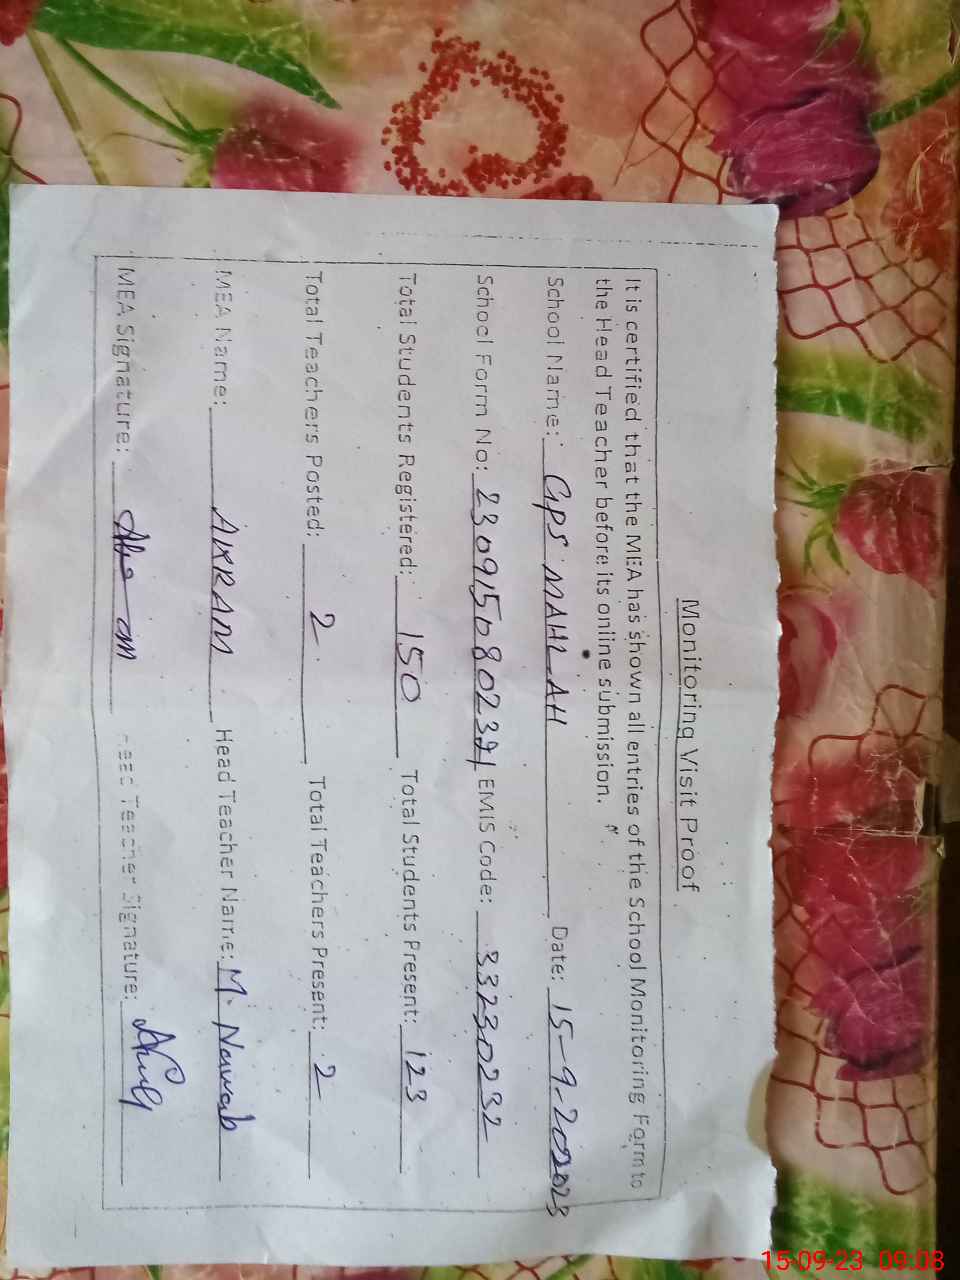 Monitoring Visit Proof
It is certified that the MEA has shown all entries of the School Monitoring Form to
the Head Teacher before its online submission.
School Name: GPS MAHLAH Date: 15-9-2023
School Form No: EMIS Code: 33230232
Total Students Registered: 150 Total Students Present: 123
Total Teachers Posted: 2 Total Teachers Present: 2
MEA Name: AKRAM Head Teacher Name: M. Nawab
MEA Signature: Head Teacher Signature:
15-09-23 09:08